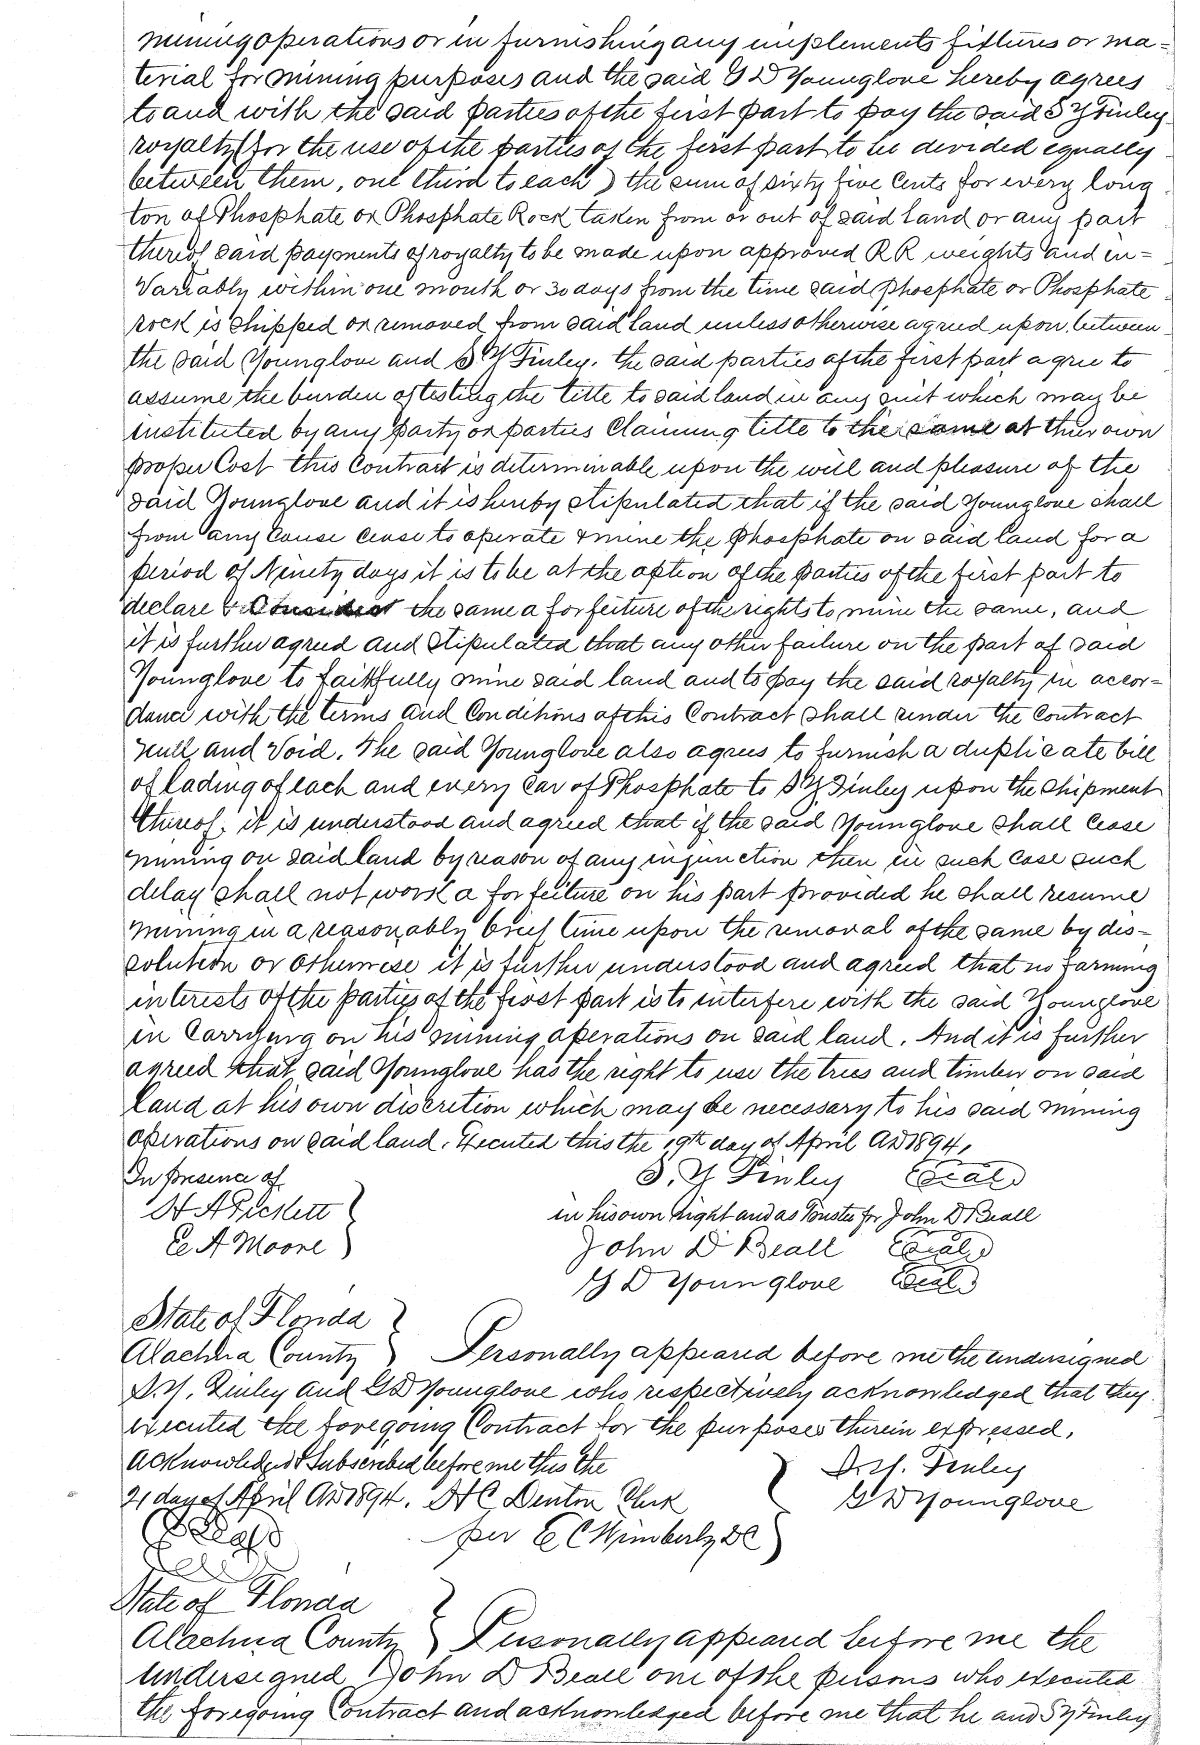 mining operations or in furnishing any implements fixtures or ma=
terial for mining purposes and the said G D Younglove hereby agrees
to and with the said parties of the first part to pay the said S Y Finley
royalty (for the use of the parties of the first part to be divided equally
between them, one third to each) the sum of sixty five Cents for every long
ton of Phosphate or Phosphate Rock taken from or out of said land or any part
thereof said payments of royalty to be made upon approved R R weights and in=
Variably within one month or 30 days from the time said phosphate or Phosphate
rock is shipped or removed from said land unless otherwise agreed upon, between
the said Younglove and S Y Finley. the said parties of the first part agree to
assume the burden of testing the title to said land in any suit which may be
instituted by any party or parties Claiming title to the same at their own
proper Cost this Contract is determinable upon the will and pleasure of the
said Younglove and it is hereby stipulated that if the said Younglove shall
from any Cause cease to operate & mine the phosphate on said land for a
period of Ninety days it is to be at the option of the parties of the first part to
declare & Consider the same a forfeiture of the rights to mine the same, and
it is further agreed and stipulated that any other failure on the part of said
Younglove to faithfully mine said land and to pay the said royalty in accor=
dance with the terms and Conditions of this Contract shall render the Contract
null and Void. The said Younglove also agrees to furnish a duplicate bill
of lading of each and every Car of Phosphate to S Y Finley upon the shipment
thereof, it is understood and agreed that if the said Younglove shall Cease
mining on said land by reason of any injunction then in such Case such
delay shall not work a forfeiture on his part provided he shall resume
mining in a reasonably brief time upon the removal of the same by dis=
solution or otherwise it is further understood and agreed that no farming
interests of the parties of the first part is to interfere with the said Younglove
in Carrying on his mining operations on said land. And it is further
agreed that said Younglove has the right to use the trees and timber on said
land at his own discretion which may be necessary to his said mining
operations on said land. Executed this the 19th day of April AD 1894,
In presence of S. Y Finley (Seal)
H A Pickett in his own right and as Trustee for John D Beall
E A Moore John D Beall (Seal)
G D Younglove (Seal)
State of Florida
Alachua County Personally appeared before me the undersigned
S. Y. Finley and G D Younglove who respectively acknowledged that they
executed the foregoing Contract for the purposes therein expressed.
Acknowledged & Subscribed before me this the S. Y. Finley
21 day of April AD 1894. H C Denton Clerk G D Younglove
(Seal) per E C Wimberly DC
State of Florida
Alachua County Personally appeared before me the
undersigned John D Beall one of the persons who executed
the foregoing Contract and acknowledged before me that he and S Y Finley